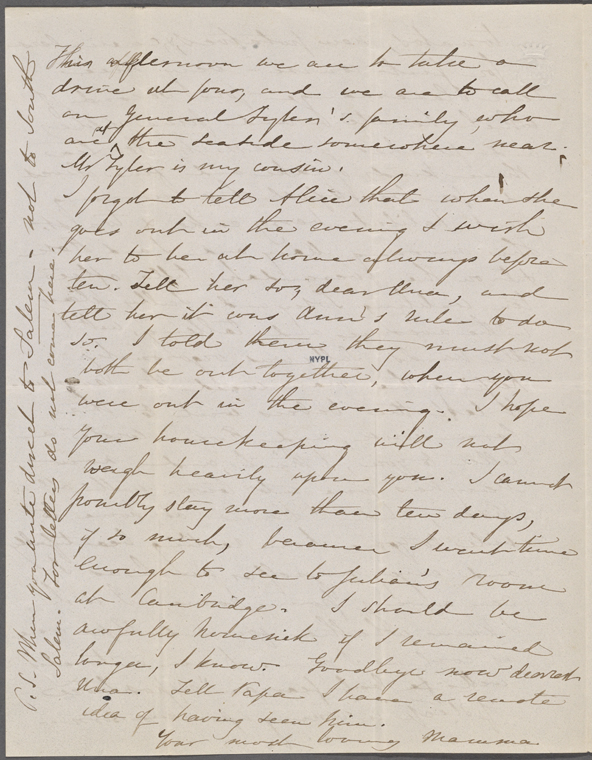 This afternoon we are to take a
drive at four, and we are to call
on General Tyler's family, who
are at the seaside somewhere near.
Mr Tyler is my cousin.
I forgot to tell Alice that when she
goes out in the evening I wish
her to be at home always before
ten. Tell her so, dear Una, and
tell her it was Ann's rule to do
so. I told them they must not
both be out together, when you
were out in the evening. I hope
your housekeeping will not
weigh heavily upon you. I cannot
possibly stay more than ten days,
if so much, because I want time
enough to see to Julian's room
at Cambridge. I should be
awfully homesick if I remained
longer, I know. Goodbye now dearest
Una. Tell Papa I have a remote
idea of having seen him.
Your most loving Mamma
P.S. When you write direct to Salem - not to South
Salem. For letters do not come here.
NYPL